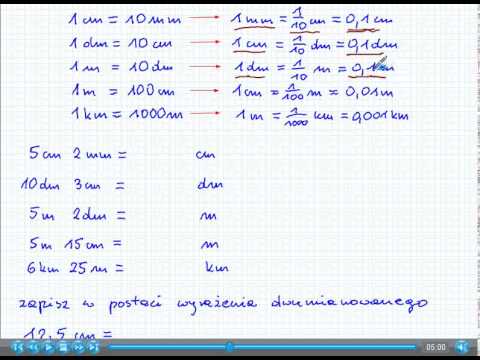 1 cm = 10 mm → 1 mm = 1/10 cm = 0,1 cm
1 dm = 10 cm → 1 cm = 1/10 dm = 0,1 dm
1 m = 10 dm → 1 dm = 1/10 m = 0,1 m
1 m = 100 cm → 1 cm = 1/100 m = 0,01 m
1 km = 1000 m → 1 m = 1/1000 km = 0,001 km
5 cm 2 mm = cm
10 dm 3 cm = dm
5 m 2 dm = m
5 m 15 cm = m
6 km 25 m = km
zapisz w postaci wyrażenia dwumianowanego
12,5 cm =
05:00